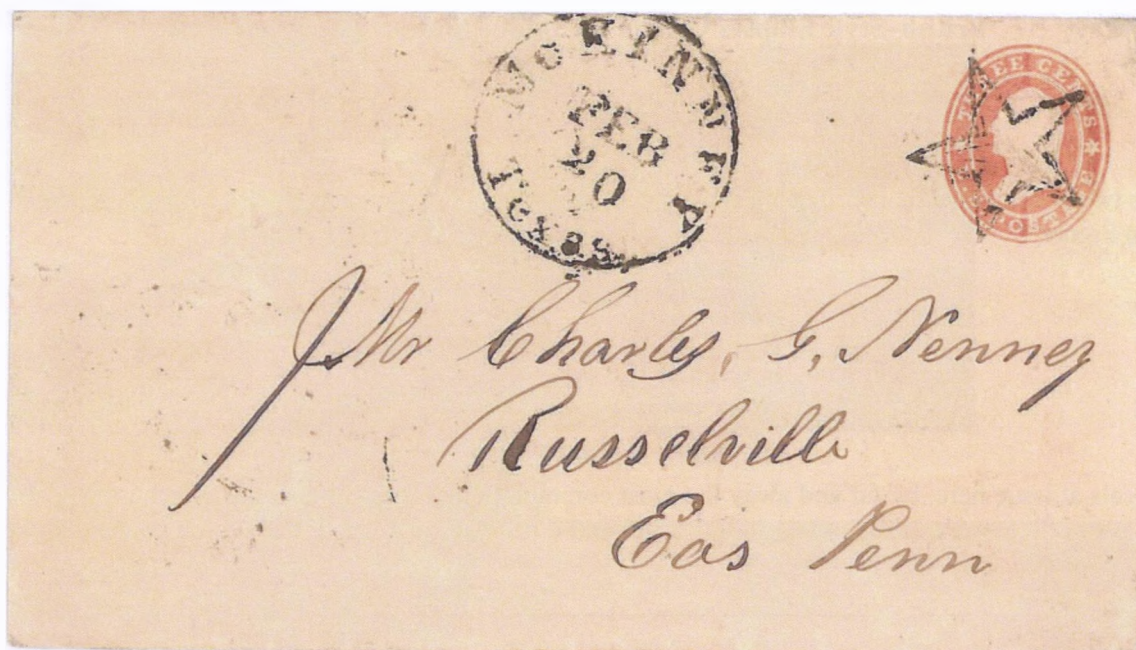 McKINNEY
FEB
20
Texas
THREE CENTS
POSTAGE
Mr Charles, G, Nenney
Russelville
Eas Penn